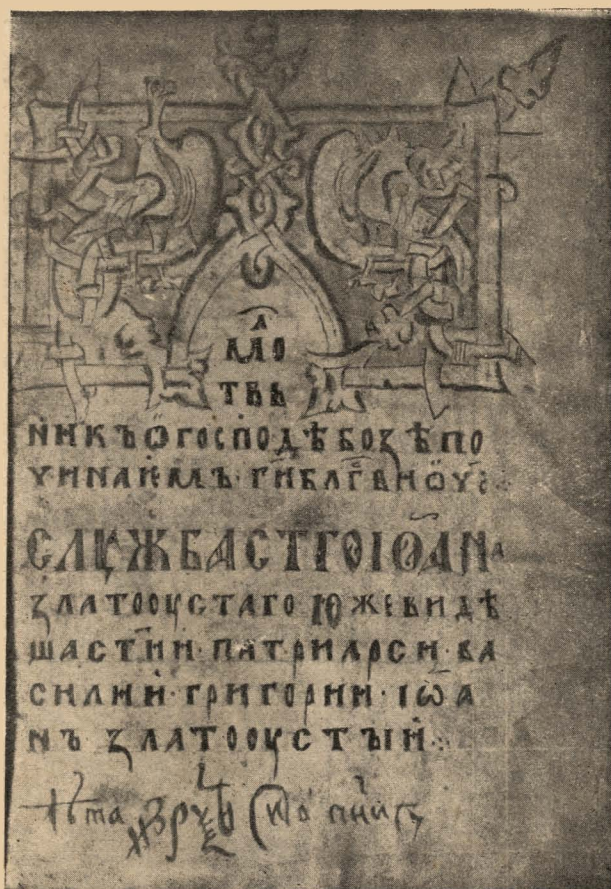 мло
твь
никъ ѿ господѣ бозѣ по
чинаимъ · ги блгви ѿч҃е
слꙋжба стго іѡана
златооустаго юже видѣ
шастии патриарси · ва
силии · григории · іѡа
нъ златооустыи
лѣта